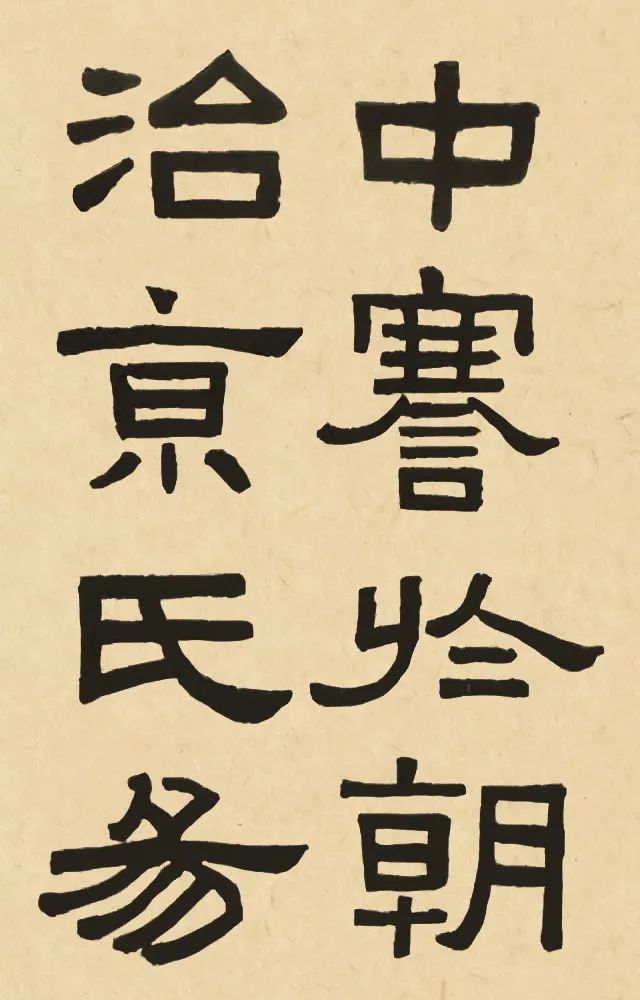 中謇於朝
治京氏易